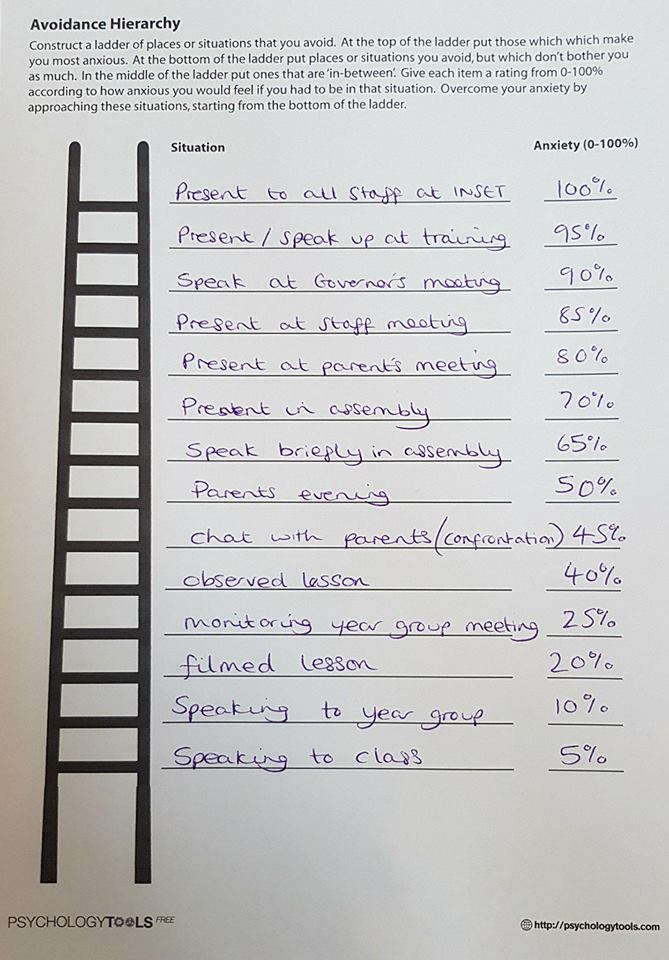 Avoidance Hierarchy
Construct a ladder of places or situations that you avoid. At the top of the ladder put those which which make
you most anxious. At the bottom of the ladder put places or situations you avoid, but which don't bother you
as much. In the middle of the ladder put ones that are 'in-between'. Give each item a rating from 0-100%
according to how anxious you would feel if you had to be in that situation. Overcome your anxiety by
approaching these situations, starting from the bottom of the ladder.
Situation Anxiety (0-100%)
Present to all staff at INSET 100%
Present / speak up at training 95%
Speak at Governor's meeting 90%
Present at staff meeting 85%
Present at parent's meeting 80%
Present in assembly 70%
Speak briefly in assembly 65%
Parents evening 50%
chat with parents (confrontation) 45%
observed lesson 40%
monitoring year group meeting 25%
filmed lesson 20%
Speaking to year group 10%
Speaking to class 5%
PSYCHOLOGYTOOLS FREE http://psychologytools.com